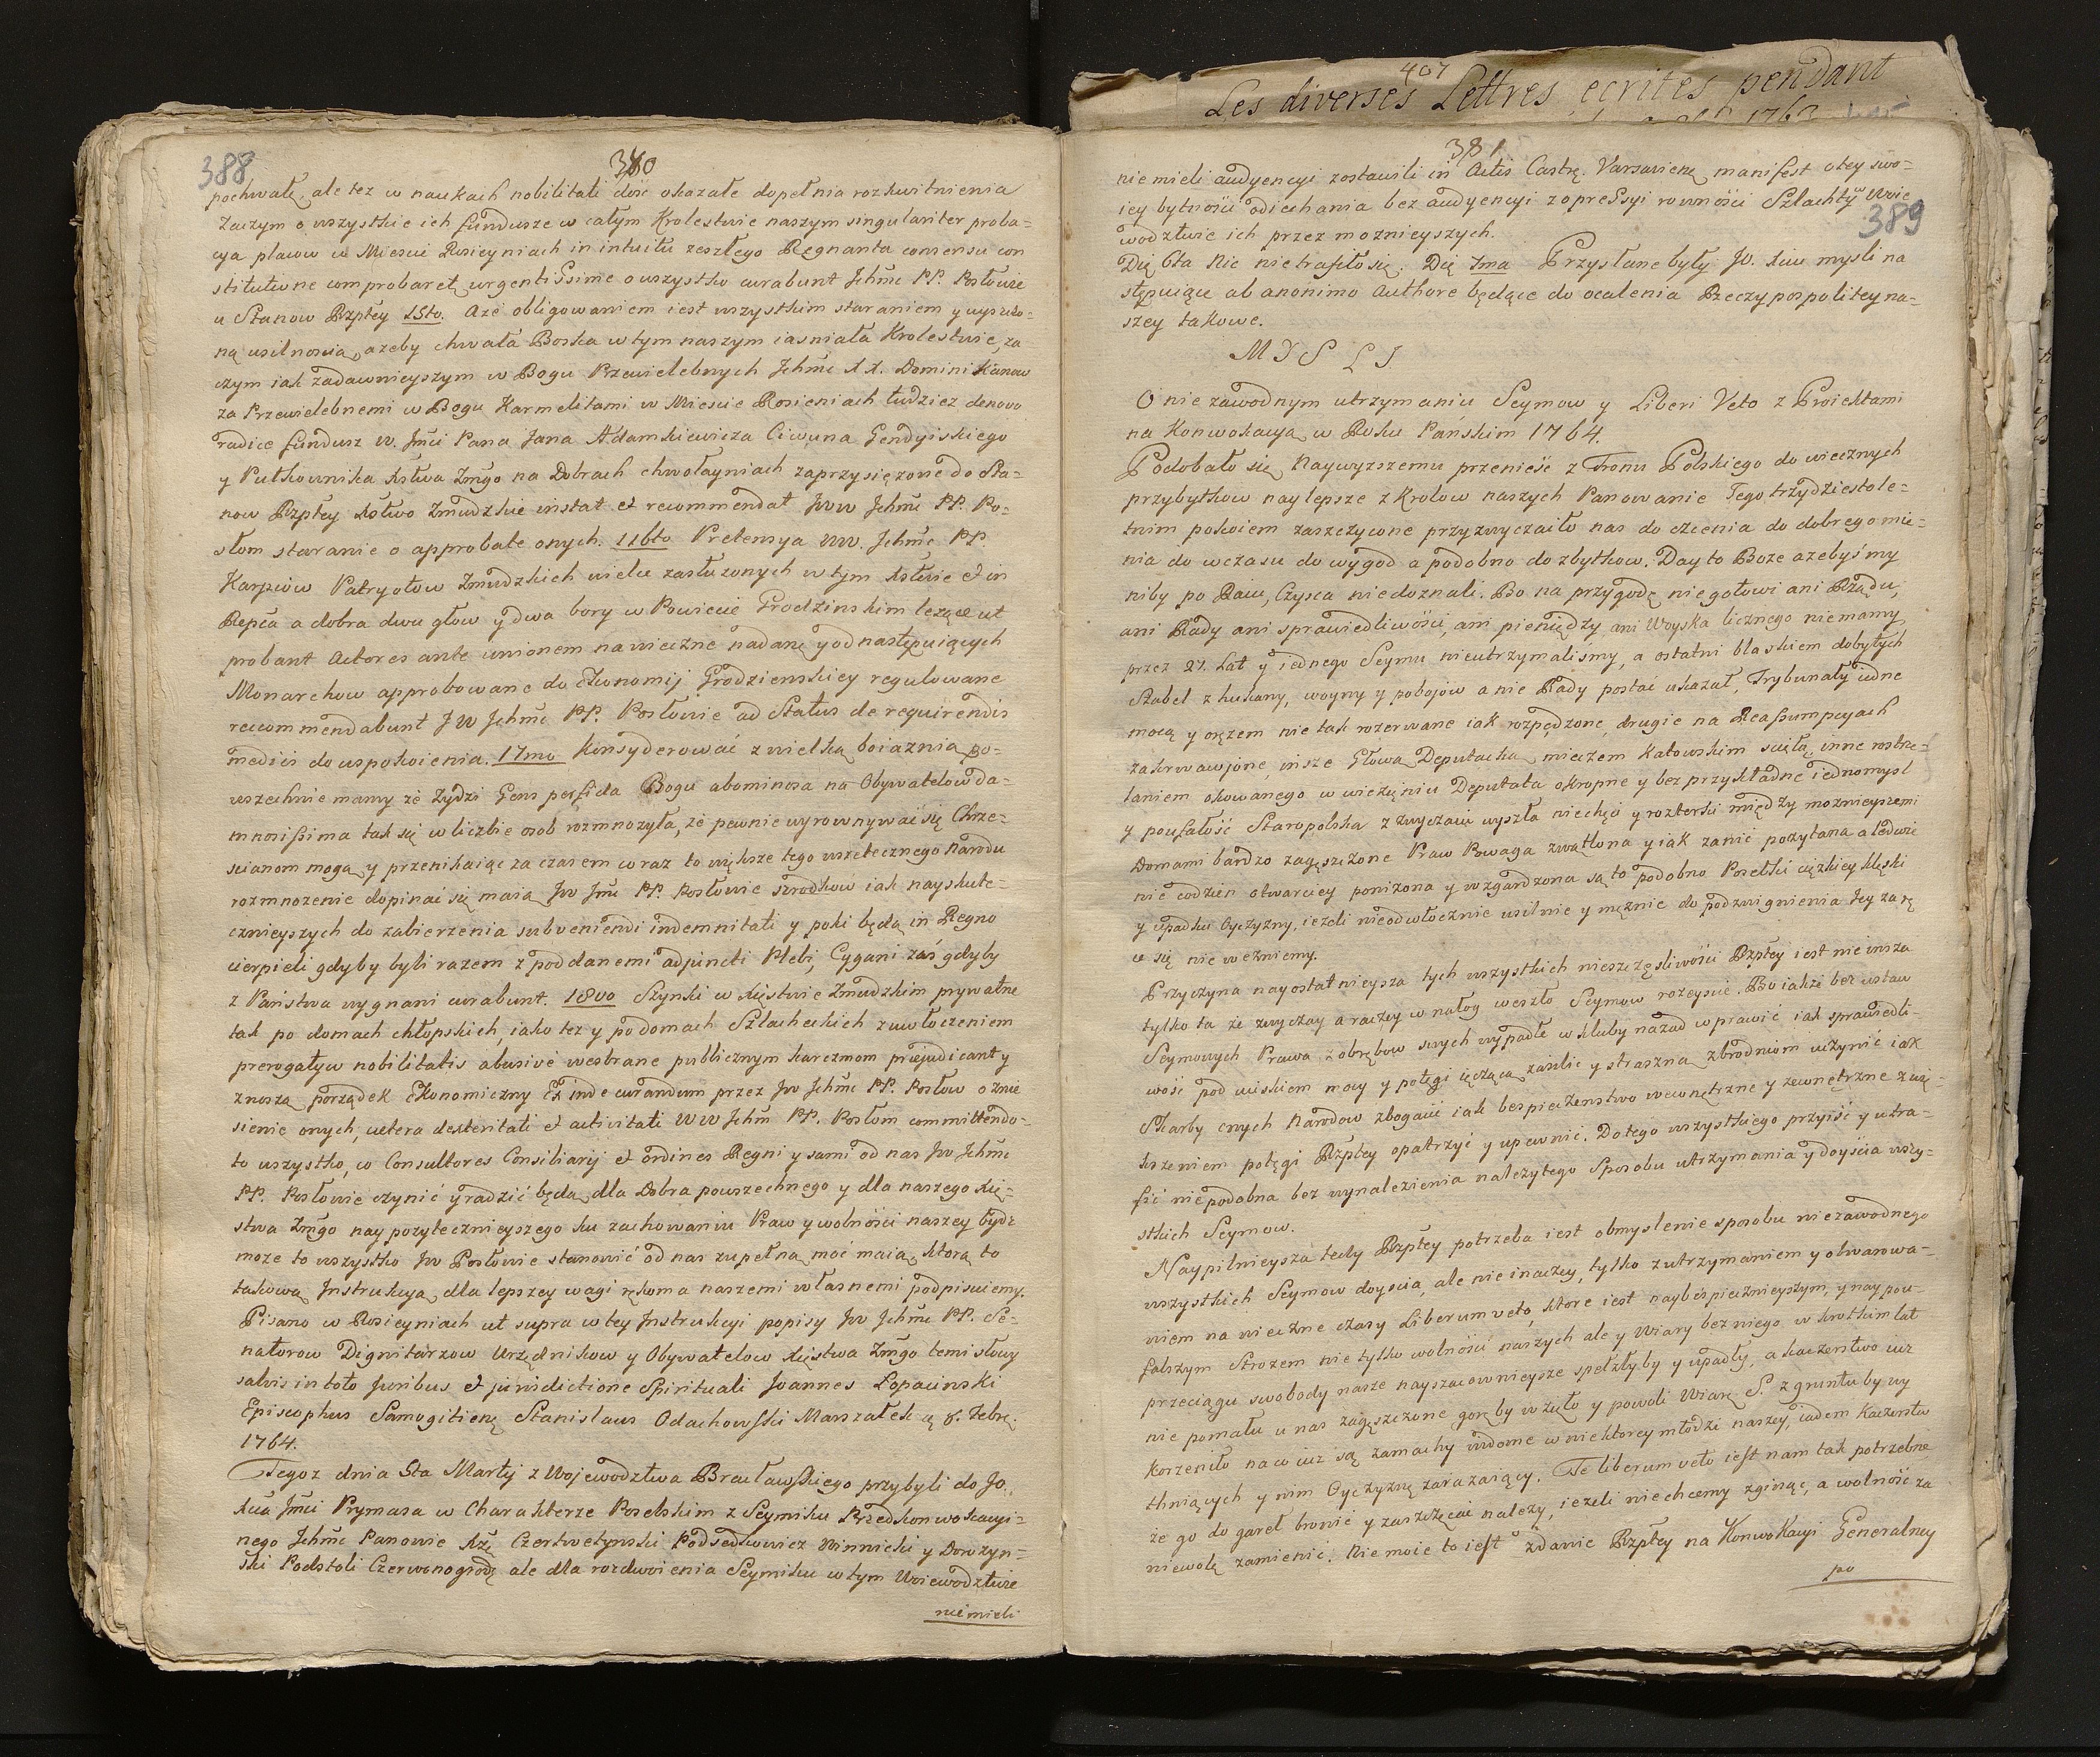 388
380
pochwałę, ale tez w naukach nobilitati dość okazałe dopełnia rozkwitnienia
Zaczym o wszystkie ich fundusze w całym Krolestwie naszym singulariter proba-
cya placow w Miescie Rosieyniach in intuitu zeszłego Regnanta consensu con
stitutione comprobaret urgentissime o wszystko curabunt Jchmć PP. Posłowie
u Stanow Rzptey 15to. Aze obligowaniem iest wszystkim staraniem y wysoko-
ną usilnoscią, azeby chwała Boska w tym naszym iasniała Krolestwie, za
czym iak zadawnieyszym w Bogu Przewielebnych Jchmć XX. Dominikanow
za Przewielebnemi w Bogu Karmelitami w Miescie Rosieniach tudziez denovo
radice fundusz W. Jmći Pana Jana Adamkiewicza Ciwuna Gondyiskiego
y Pułkownika Xstwa Zmgo na Dobrach chwołayniach zaprzysięzone do Sta-
now Rzptey Xstwo Zmudzkie instat et recommendat JWW Jchmć PP. Po-
słom staranie o approbate onych. 116to Pretensya WW. Jchmć PP.
Karpiow Patryotow Zmudzkich wielce zasłuzonych w tym Xstwie et in
Repca a dobra dwu głow y dwa bory w Powiecie Grodzinskim lezące ut
probant Actores ante unionem na wieczne nadane y od następuiących
Monarchow approbowane do Ekonomij Grodzienskiey regulowane
recommendabunt JW Jchmć PP. Posłowie ad Status de requirendis
mediis do uspokoienia. 17mo Konsyderować z wielką boiaznią po-
wszechnie mamy ze Zydzi Gens perfida Bogu abominosa na Obywatelow da-
mnosissima tak się w liczbie osob rozmnozyła, że pewnie wyrownywać się Chrze-
scianom mogą y przenikaiąc za czasem coraz to większe tego wszetecznego Narodu
rozmnozenie dopinać się maią JW Jmć PP. Posłowie srodkow iak nayskute-
cznieyszych do zabierzenia subveniendi indemnitati y poki będą in Regno
cierpieli gdyby byli razem z poddanemi adjuncti Plebi, Cygani zaś gdyby
z Państwa wygnani curabunt. 18vo Szynki w Xięstwie Zmudzkim prywatne
tak po domach chłopskich, iako tez y po domach Szlacheckich z uwłoczeniem
prerogatyw nobilitatis abusivè wesbrane publicznym karczmom præjudicant y
znoszą porządek Ekonomiczny Ex inde curandum przez JW Jchmć PP. Posłow o znie
sienie onych, cetera dexteritati et activitati WW Jchm PP. Posłom committendo-
to wszystko, co Consultores Consiliarij et ordines Regni y sami od nas JW Jchmć
PP. Posłowie czynić y radzić będą dla Dobra powszechnego y dla naszego Xię-
stwa Zmgo naypozytecznieyszego ku zachowaniu Praw y wolności naszey bydz
moze to wszystko JW Posłowie stanowić od nas zupełną moć maią, ktorą to
takową Instrukcyą dla lepszey wagi rękoma naszemi własnemi podpisuiemy.
Pisano w Rosieyniach ut supra w tey Instrukcyi popisy JW Jchmć PP. Se-
natorow Dignitarzow Urzędnikow y Obywatelow Xięstwa Zmgo temi słowy
salvis in toto Juribus et jurisdictione Spirituali Joannes Łopacinski
Episcophus Samogitienę Stanislaus Odachowski Marszałek ą 8. Febrę.
1764.
Tegoz dnia 5ta Martij z Wojewodztwa Bracławskiego przybyli do Jo.
Xcia Jmći Prymasa w Charakterze Poselskim z Seymiku Przedkonwokacyi-
nego Jchmć Panowie Xżę Czertwetynski Podsedkowicz Winnicki y Dorozyn-
ski Podstoli Czerwonogrodz ale dla rozdwoienia Seymiku w tym Woiewodztwie
nie mieli
407
Les diverses Lettres ecrites pendant
1763
381
389
nie mieli audyencyi zostawili in Actis Castrę. Varsavienę manifest o tey swo-
iey bytności odiechania bez audyencyi z opressyi rowności Szlachty w Woie
wodztwie ich przez moznieyszych.
Dię 6ta Nic nie trafiło się. Dię 7ma Przysłane były Jo. Xciu mysli na
stępuiące ab anonimo Authore będące do ocalenia Rzeczypospolitey na-
szey takowe.
MYSLI
O nie zawodnym utrzymaniu Seymow y Liberi Veto z Proiektami
na Konwokacyą w Roku Pańskim 1764.
Podobało się Naywyzszemu przenieść z Tronu Polskiego do wiecznych
przybytkow naylepsze z Krolow naszych Panowanie Tego trzydziestole-
tnim pokoiem zaszczycone przyzwyczaiło nas do czcenia do dobrego mie-
nia do wczasu do wygod a podobno do zbytkow. Day to Boze azebyśmy
niby po Raiu, Czysca nie doznali. Bo na przygodę nie gotowi ani Rządu,
ani Rady ani sprawiedliwości, ani pieniędzy ani Woyska licznego niemamy
przez 27. Lat y iednego Seymu nieutrzymaliśmy, a ostatni blaskiem dobytych
Szabel z hukany, woyny y pobojow a nie Rady postać ukazał, Trybunały iedne
mocą y oręzem nie tak rozerwane iak rozpędzone, drugie na Reassumpcyach
zakrwawjone, insze Głową Deputacką mieczem Katowskim sciętą, inne rostrze-
laniem okowanego w więzieniu Deputata okropne y bez przykładne iednomysl
y poufałość Staropolska z zwyczaiu wyszła niechęć y rozterki między moznieyszemi
Domami bardzo zagęszczone Praw Powaga zwątlona y iak zanic poczytana a ledwie
nie codzien otwarciey ponizona y wzgardzona są to podobno Posełki cięzkiey klęski
y upadku Oyczyzny, iezeli nieodwłocznie usilnie y męznie do podzwignienia Jey za rę
ce się nie wezniemy.
Przyczyna nayostatnieysza tych wszystkich nieszczęsliwości Rzptey iest nie insza
tylko ta że zwyczay a raczey w nałog weszło Seymow rozeyscie. Bo iakże bez ustaw
Seymowych Prawa z obrębow swych wypadłe w kluby nazad wprawić iak sprawiedli-
wość pod uciskiem mocy y potęgi ięczącą zasilić y straszną zbrodniom uczynić iak
Skarby cnych Narodow zbogacić iak bespieczenstwo wewnętrzne y zewnętrzne z wię-
kszeniem potęgi Rzptey opatrzyć y upewnić. Do tego wszystkiego przyiść y utra-
fić niepodobna bez wynalezienia nalezytego Sposobu utrzymania y doyścia wszy-
stkich Seymow.
Naypilnieysza tedy Rzptey potrzeba iest obmyslenie sposobu niezawodnego
wszystkich Seymow doyscia, ale nie inaczey, tylko z utrzymaniem y obwarowa-
niem na wieczne czasy Liberum veto, ktore iest naybespiecznieyszym, y naypou-
falszym Strozem nie tylko wolności naszych ale y Wiary bez niego w krotkim lat
przeciągu swobody nasze nayszacownieysze spełzłyby y upadły, a kacerstwo iuz
nie pomału u nas zagęszczone goręby wzięło y powoli Wiarę S. z gruntu by wy
korzeniło na co iuz są zamachy widome w niektorey młodzi naszey, iadem Kacerstw
thniących y nim Oyczyznę zarazaiący. Te liberum veto iest nam tak potrzebne
że go do gareł bronić y zaszczycać nalezy, iezeli niechcemy zginąć, a wolność za
niewolę zamienić. Niemoie to iest zdanie Rzptey na Konwokacyi Generalney
po